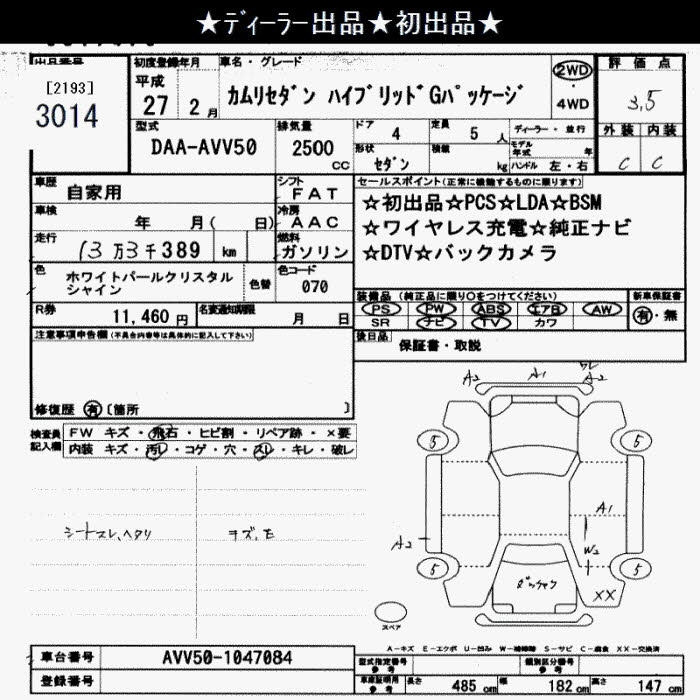 ★ディーラー出品★初出品★
出品番号
[2193]
3014
初度登録年月
平成
27 2 月
車名・グレード
カムリセダン ハイブリッドGパッケージ
2WD
・
4WD
評価点
3.5
外装 内装
C C
型式
DAA-AVV50
排気量
2500
CC
ドア 4
定員 5 人
ディーラー・並行
モデル年式 年
形状 セダン
積載 kg
ハンドル 左・右
車歴 自家用
シフト FAT
車検 年 月( 日)
冷房 AAC
走行 13万3千389 km
燃料 ガソリン
色 ホワイトパールクリスタル
シャイン
色替
色コード
070
R券 11,460 円
名変通知期限 月 日
セールスポイント(正常に機能するものに限ります)
☆初出品☆PCS☆LDA☆BSM
☆ワイヤレス充電☆純正ナビ
☆DTV☆バックカメラ
装備品 (純正品に限り○をつけてください)
新車保証書
PS PW ABS エアB AW
SR ナビ TV カワ
有・無
後日品 保証書・取説
注意事項申告欄(不具合内容等は具体的に記入して下さい)
修復歴 有〔箇所 〕
検査員
記入欄
FW キズ・飛石・ヒビ割・リペア跡・×要
内装 キズ・汚レ・コゲ・穴・スレ・キレ・破レ
シートスレ、ヘタリ
キズ、E
A2 A1 A2
5 5
A1
A2
W2
5 5
XX
スペア
A-キズ E-エクボ U-凹み W-補修跡 S-サビ C-腐食 XX-交換済
車台番号 AVV50-1047084
登録番号
型式指定番号
参考
類別区分番号
参考
車庫証明用
参考
長さ 485 cm 幅 182 cm 高さ 147 cm